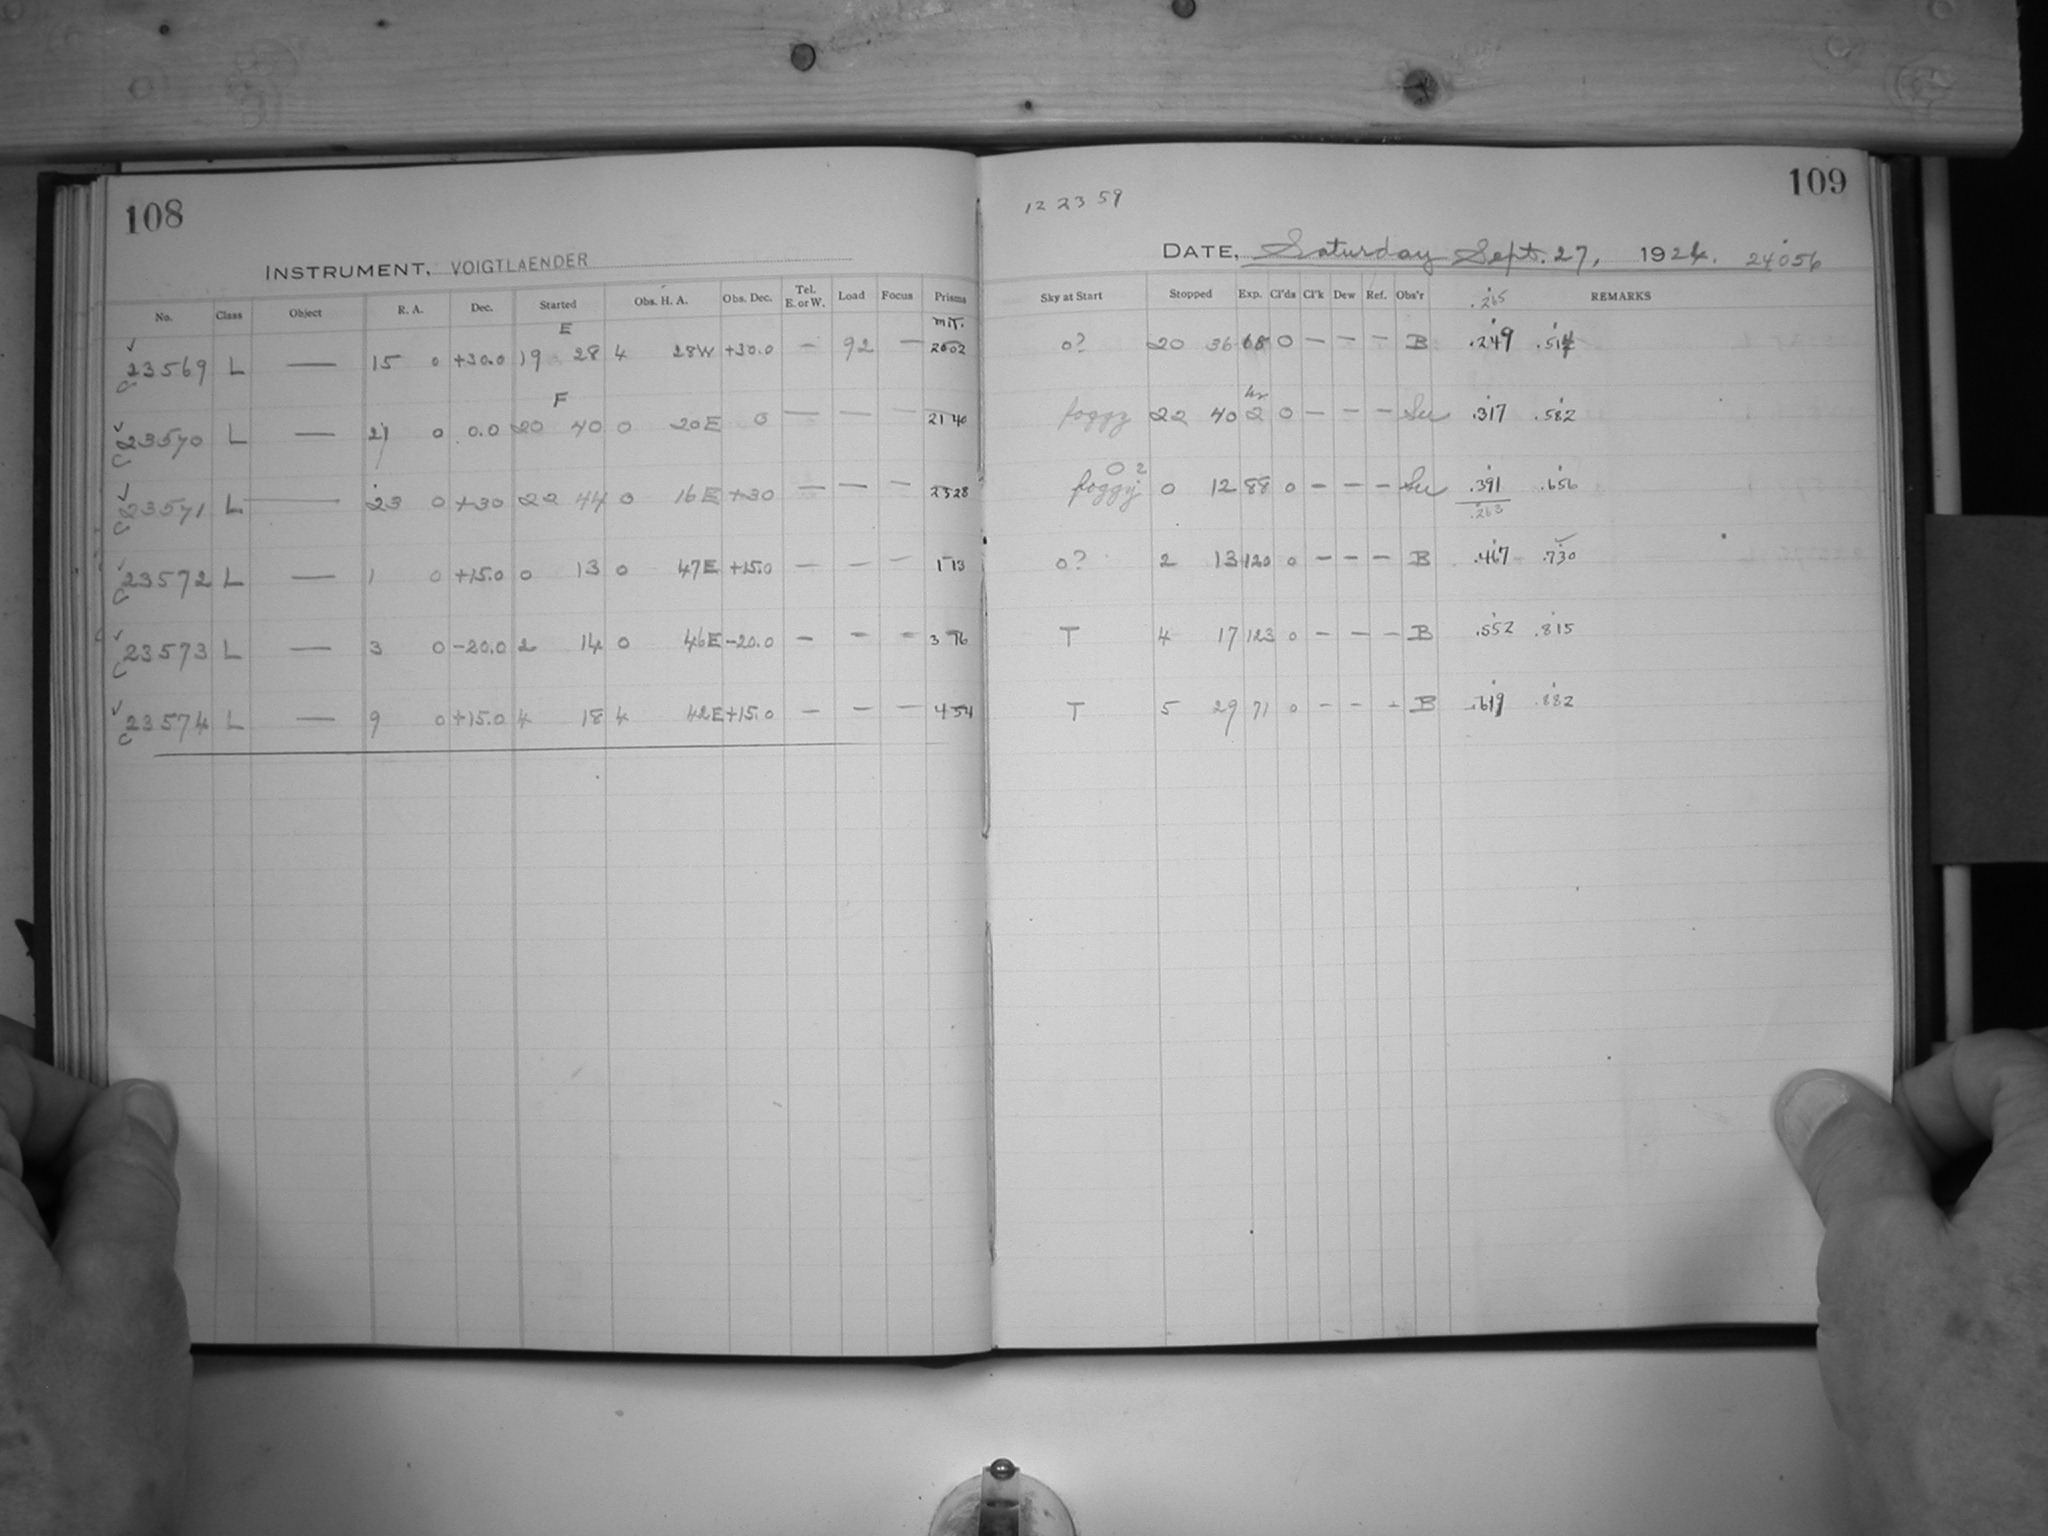 108
INSTRUMENT, VOIGTLAENDER
No. Class Object R. A. Dec. Started Obs. H. A. Obs. Dec. Tel. E. or W. Load Focus Prisms
E M.T.
23569 L — 15 0 +30.0 19 28 4 28W +30.0 — 92 — 2002
F
23570 L — 21 0 0.0 20 40 0 20E 0 — — — 2140
23571 L — 23 0 +30 22 44 0 16E +30 — — — 2328
23572 L — 1 0 +15.0 0 13 0 47E +15.0 — — — 1 13
23573 L — 3 0 -20.0 2 14 0 46E -20.0 — — — 3 16
23574 L — 9 0 +15.0 4 18 4 42E +15.0 — — — 4 54
109
12 23 59
DATE, Saturday Sept. 27, 1924. 24056
Sky at Start Stopped Exp. Cl'ds Cl'k Dew Ref. Obs'r REMARKS
.265
o? 20 36 68 0 — — — B .249 .514
hr
foggy 22 40 2 0 — — — Su .317 .582
O 2
foggy 0 12 88 0 — — — Su .391 .656
.263
o? 2 13 120 0 — — — B .467 .730
T 4 17 123 0 — — — B .552 .815
T 5 29 71 0 — — — B .619 .882